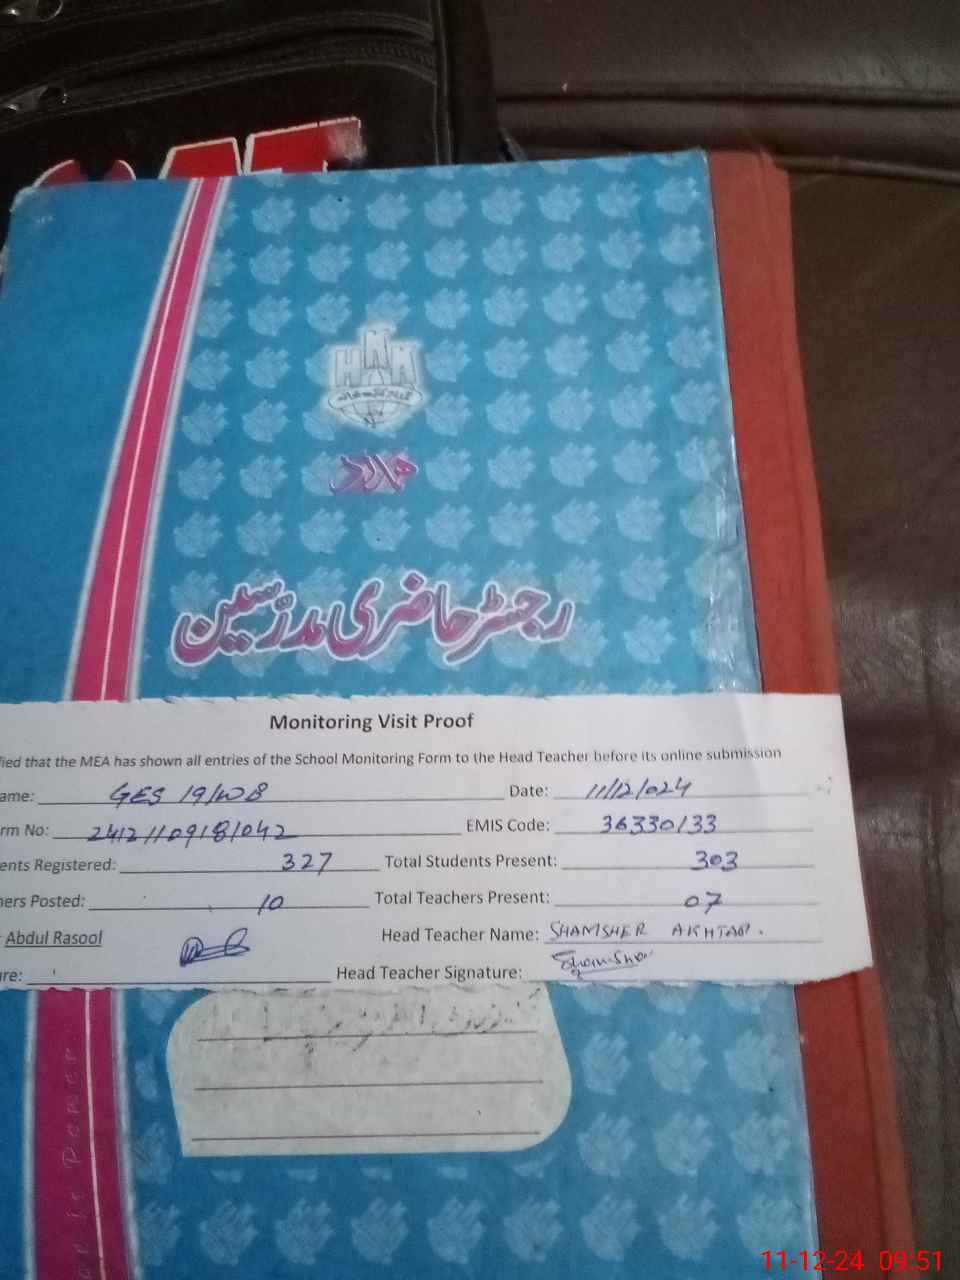 ہمدرد
رجسٹر حاضری مدرّسین
Monitoring Visit Proof
fied that the MEA has shown all entries of the School Monitoring Form to the Head Teacher before its online submission
ame: GES 19/WB Date: 11/12/024
rm No: 24121109181042 EMIS Code: 36330133
ents Registered: 327 Total Students Present: 303
hers Posted: 10 Total Teachers Present: 07
Abdul Rasool Head Teacher Name: SHAMSHER AKHTAR.
ure: Head Teacher Signature:
11-12-24 09:51